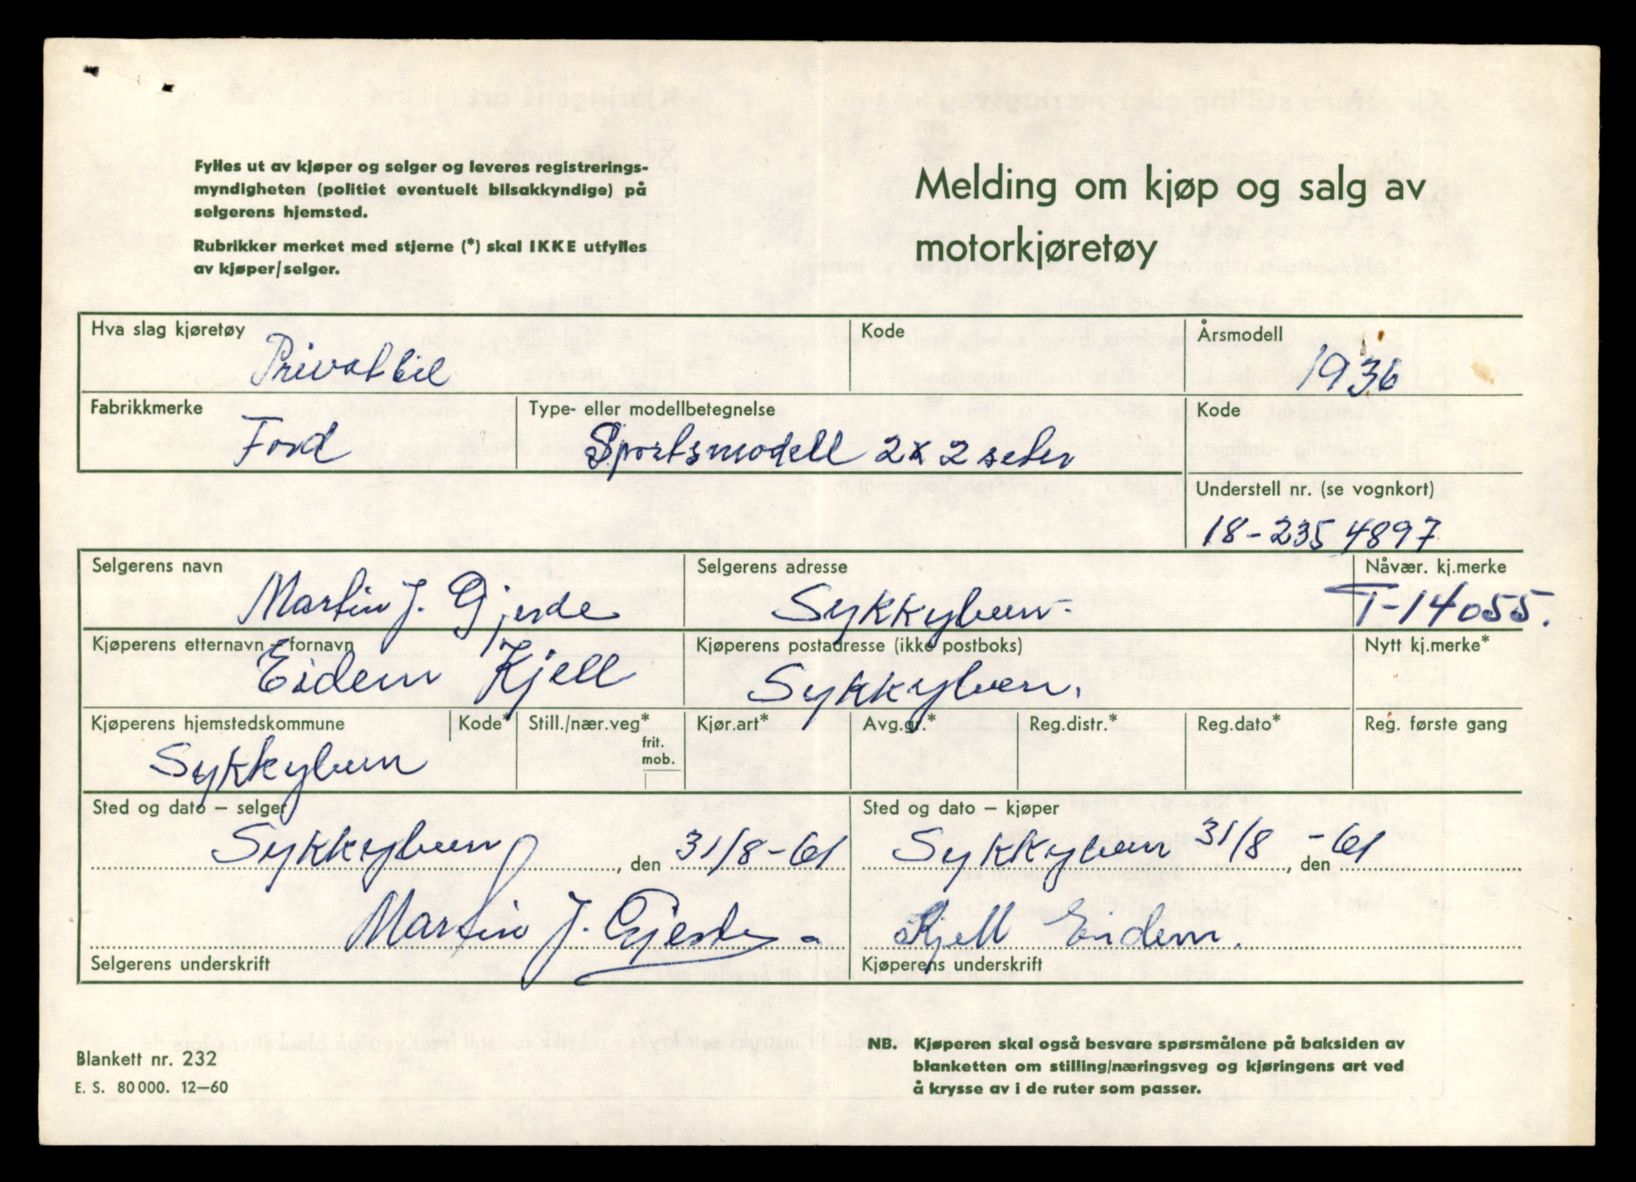 Fylles ut av kjøper og selger og leveres registrerings-
myndigheten (politiet eventuelt bilsakkyndige) på
selgerens hjemsted.
Rubrikker merket med stjerne (*) skal IKKE utfylles
av kjøper/selger.
Melding om kjøp og salg av
motorkjøretøy
Hva slag kjøretøy
Privatbil
Kode
Årsmodell
1936
Fabrikkmerke
Ford
Type- eller modellbetegnelse
Sportsmodell 2x2 seter
Kode
Understell nr. (se vognkort)
18-235 4897
Selgerens navn
Martin J. Gjerde
Selgerens adresse
Sykkylven
Nåvær. kj.merke
T-14055.
Kjøperens etternavn - fornavn
Eidem Kjell
Kjøperens postadresse (ikke postboks)
Sykkylven.
Nytt kj.merke*
Kjøperens hjemstedskommune
Sykkylven
Kode*
Still./nær.veg*
frit.
mob.
Kjør.art*
Avg.gr.*
Reg.distr.*
Reg.dato*
Reg. første gang
Sted og dato — selger
Sykkylven, den 31/8-61
Martin J. Gjerde
Selgerens underskrift
Sted og dato — kjøper
Sykkylven 31/8, den -61
Kjell Eidem.
Kjøperens underskrift
Blankett nr. 232
E. S. 80 000. 12—60
NB. Kjøperen skal også besvare spørsmålene på baksiden av
blanketten om stilling/næringsveg og kjøringens art ved
å krysse av i de ruter som passer.